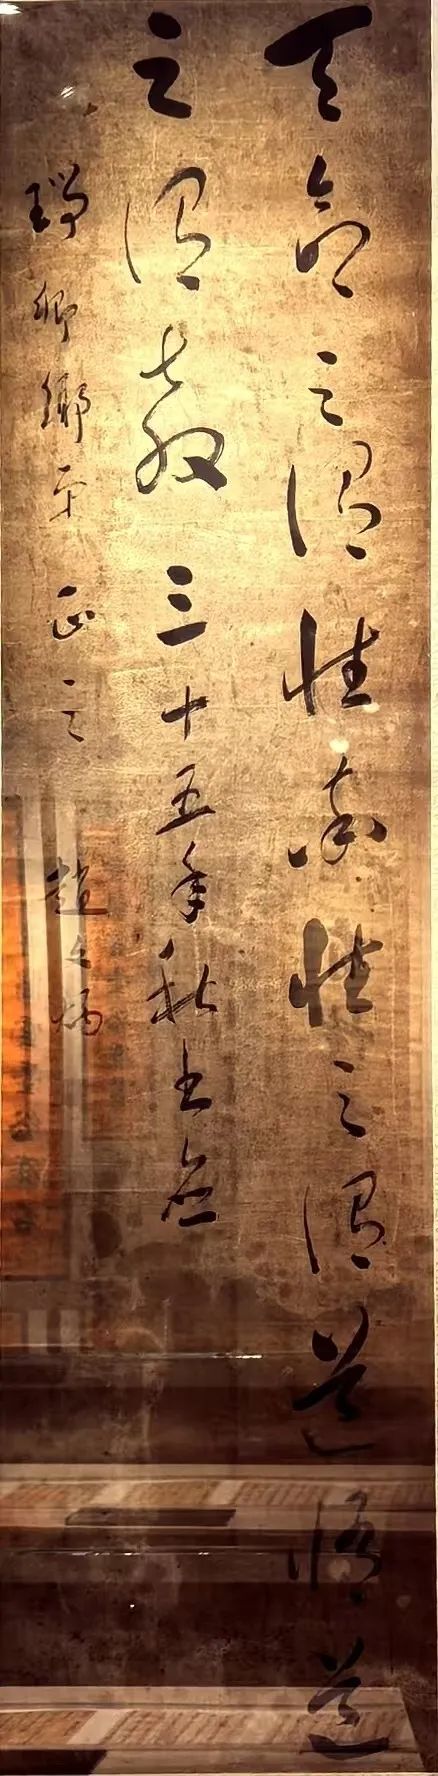 天命之謂性率性之謂道脩道
之謂教 三十五年秋書為
瑞卿鄉弟正之 趙文炳